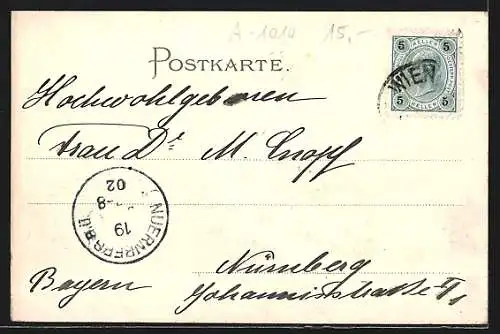 A-1010 15,-
POSTKARTE.
5 HELLER 5
WIEN
5 HELLER 5
Hochwohlgeboren
Frau Dr. M. Cnopf
NUERNBERG B.II
19
7-8
02
Nürnberg
Bayern
Johannisstrasse